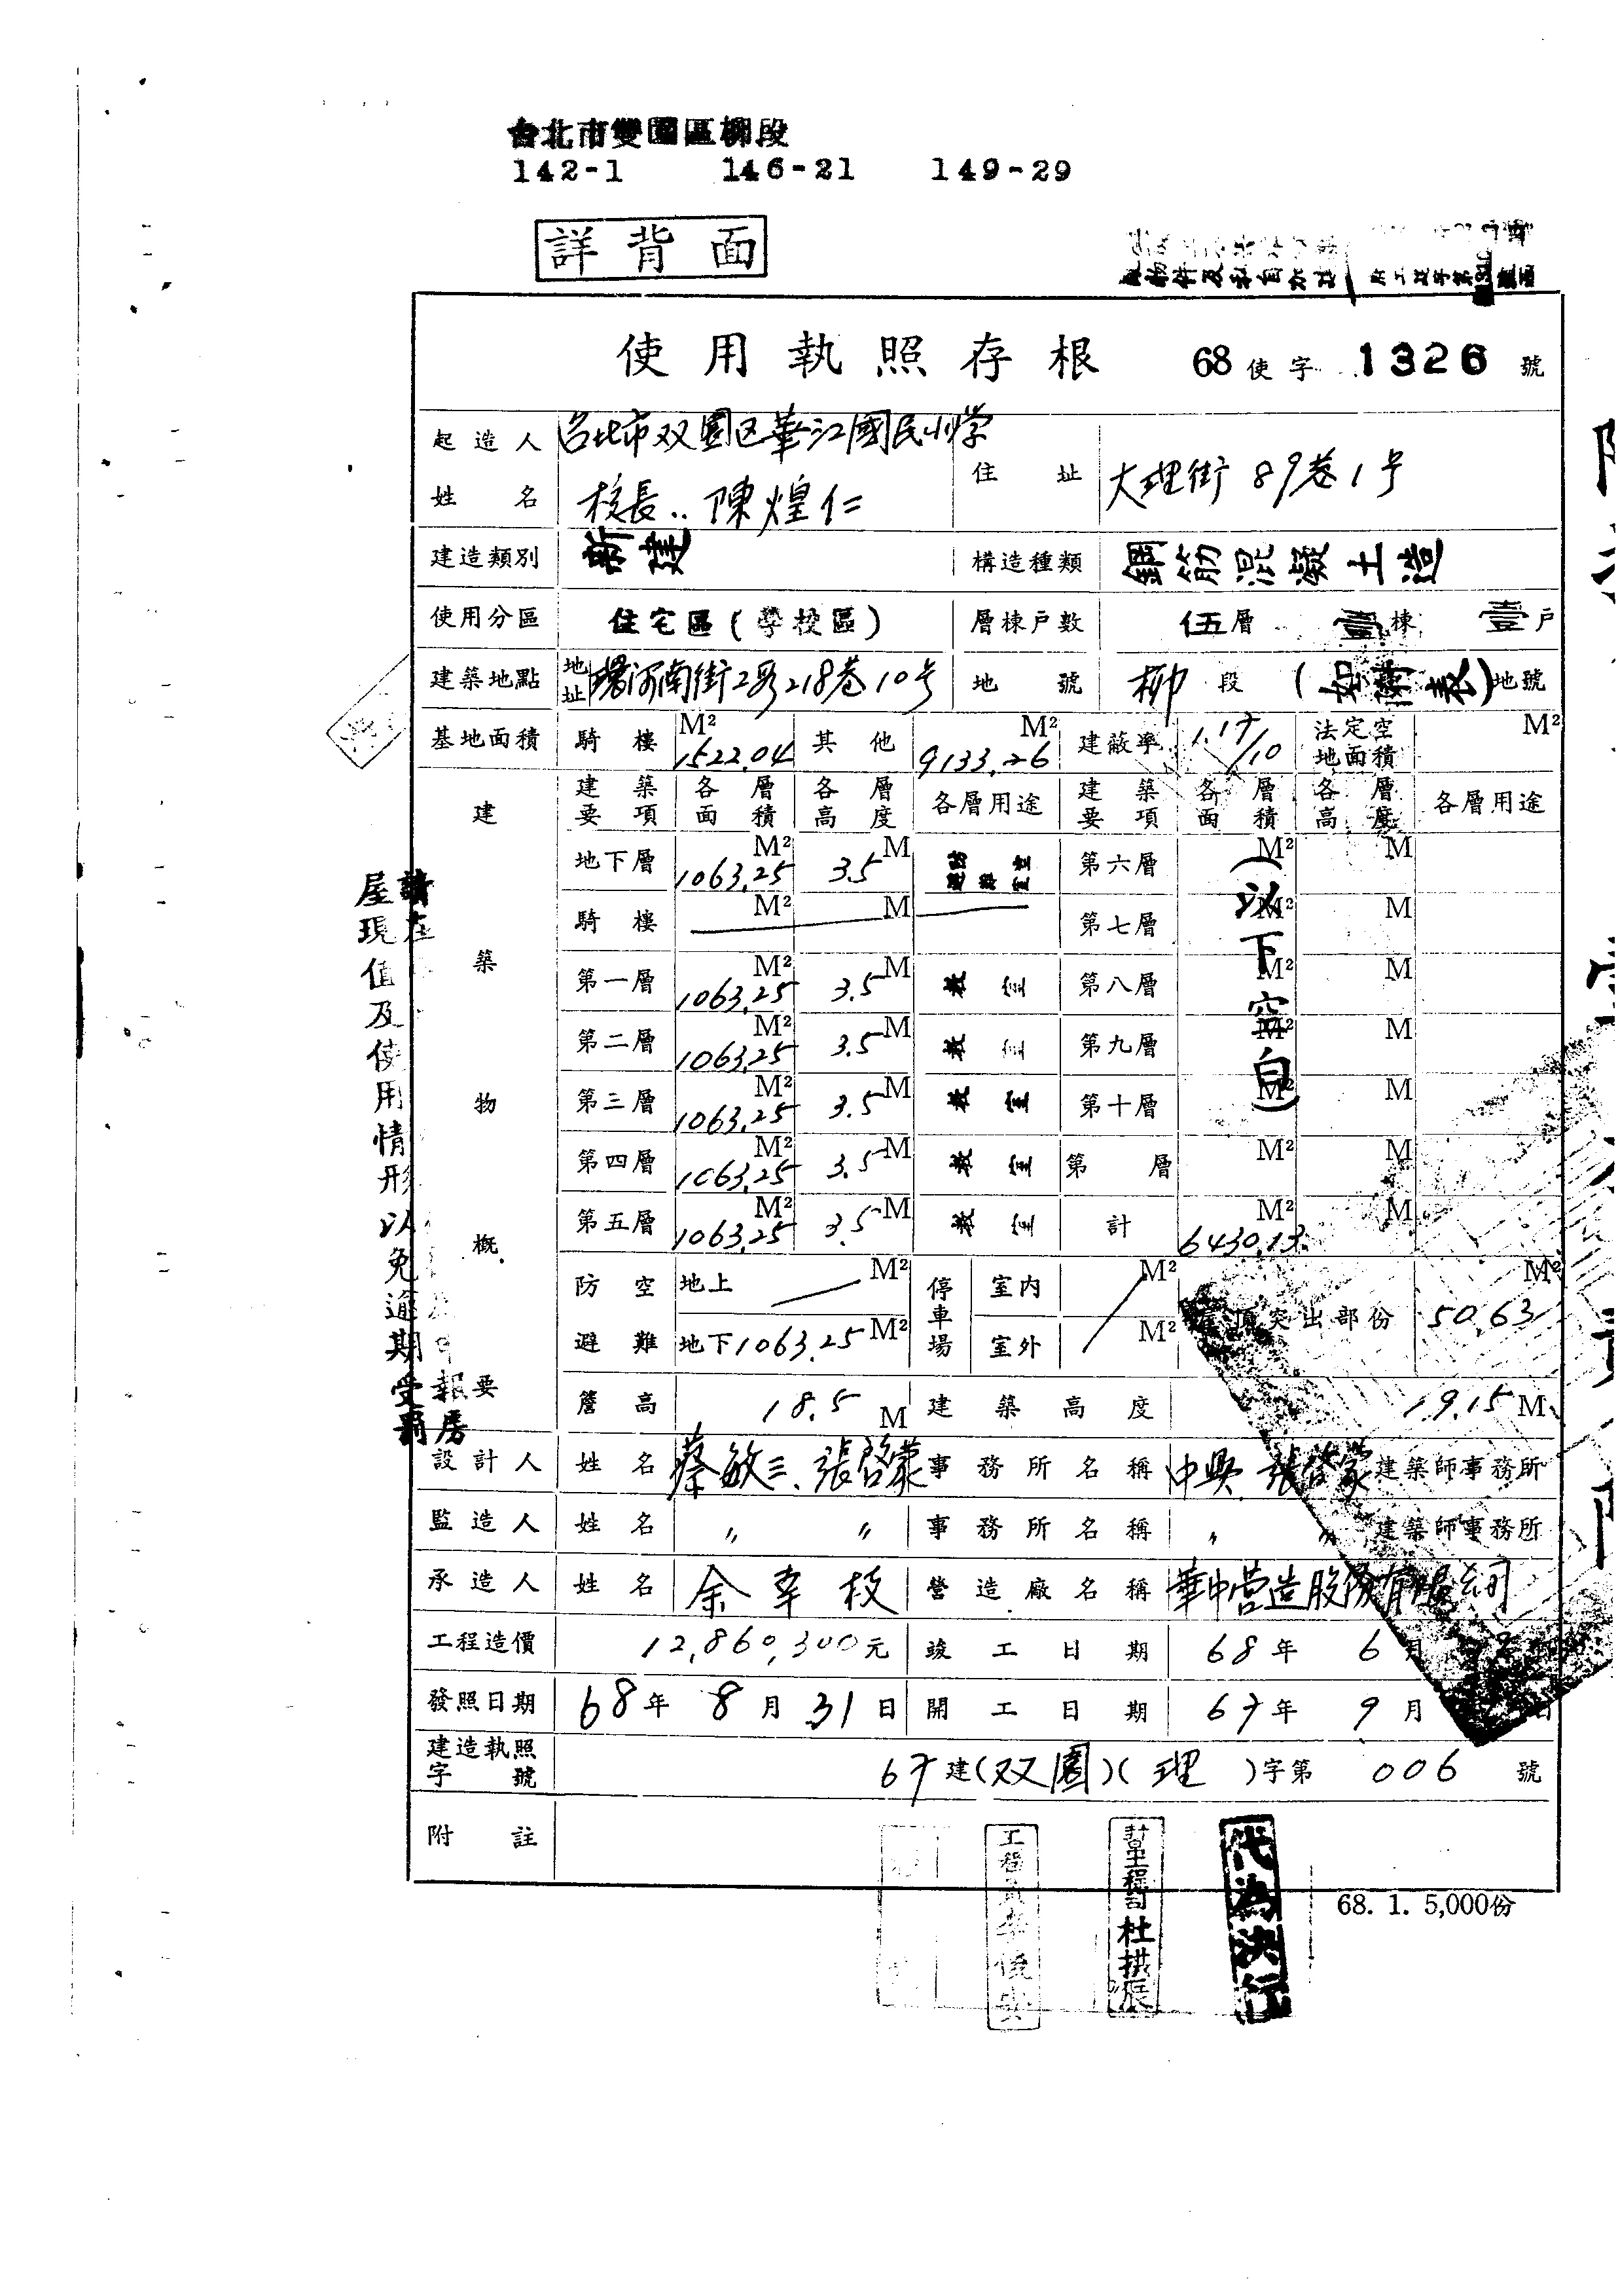 台北市雙園區柳段
142-1 146-21 149-29
詳背面
使用執照存根 68使字 1326 號
起造人姓名 台北市双園区華江國民小学 校長..陳煌仁 住址 大理街89巷1号
建造類別 新建 構造種類 鋼筋混凝土造
使用分區 住宅區(學校區) 層棟戶數 伍層 壹棟 壹戶
建築地點 地址 環河南街2段218巷10号 地號 柳段 (如附表)地號
基地面積 騎樓 1522.04 M² 其他 9133.26 M² 建蔽率 法定空地面積 M²
建築物概要
建築要項 各層面積 各層高度 各層用途 建築要項 各層面積 各層高度 各層用途
地下層 1063.25 M² 3.5 M 第六層 M² M
騎樓 M² M 第七層 M² M
第一層 1063.25 M² 3.5 M 教室 第八層 M² M
第二層 1063.25 M² 3.5 M 教室 第九層 M² M
第三層 1063.25 M² 3.5 M 教室 第十層 M² M
第四層 1063.25 M² 3.5 M 教室 第 層 M² M
第五層 1063.25 M² 3.5 M 教室 計 6430.13 M² M
(以下空白)
防空避難 地上 M² 停車場 室內 M² 頂突出部份 50.63 M²
地下 1063.25 M² 室外 M²
簷高 18.5 M 建築高度 19.15 M
設計人 姓名 蔡敏三、張啓蒙 事務所名稱 中興 張啓蒙 建築師事務所
監造人 姓名 〃 〃 事務所名稱 〃 〃 建築師事務所
承造人 姓名 余幸枝 營造廠名稱 華中营造股份有限公司
工程造價 12,860,300元 竣工日期 68年 6月
發照日期 68年 8月 31日 開工日期 67年 9月 日
建造執照字號 67建(双園)(理)字第 006 號
附註
代為決行
68. 1. 5,000份
屋現值及使用情形以免逾期受